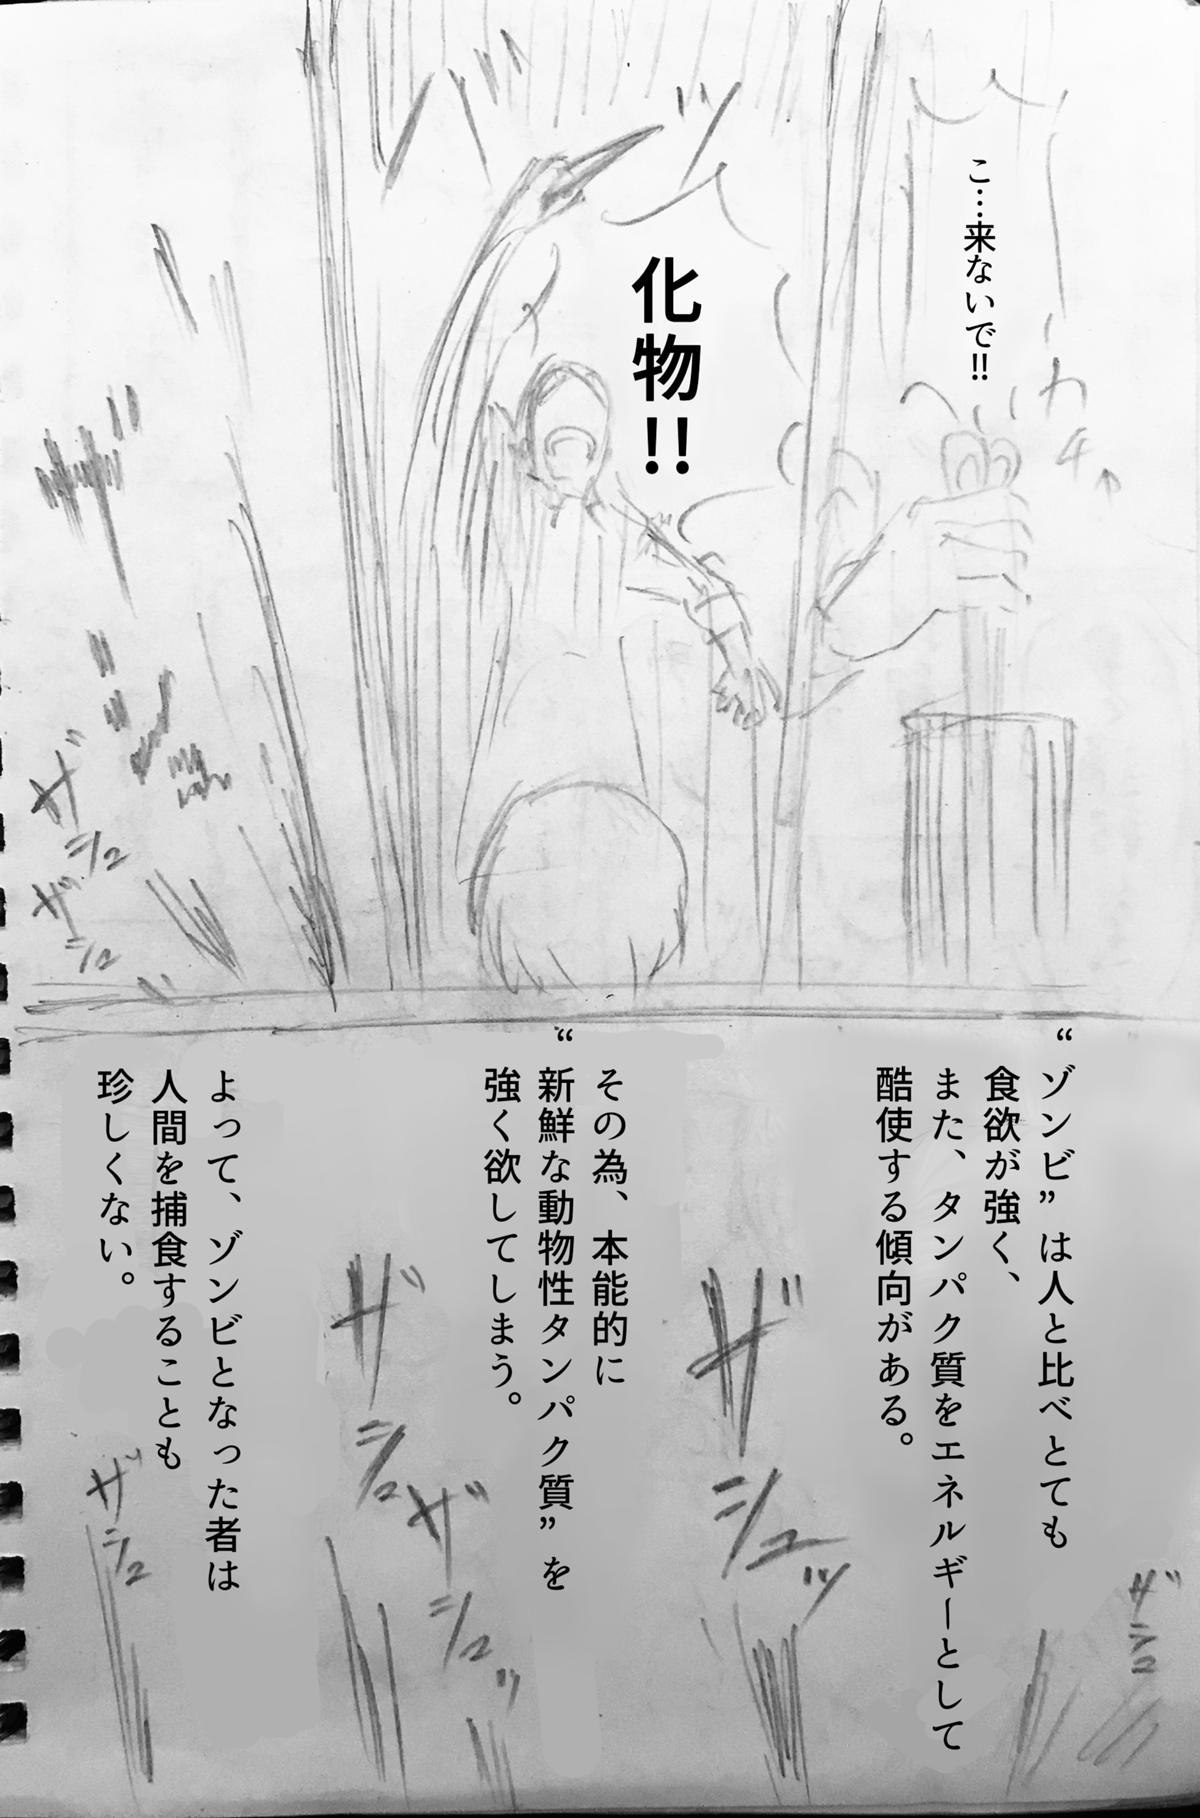 こ…来ないで!!
カ
チ
ッ
化物!!
ザ
シュ
ザ
シュ
“ゾンビ”は人と比べとても
食欲が強く、
また、タンパク質をエネルギーとして
酷使する傾向がある。
その為、本能的に
“新鮮な動物性タンパク質”を
強く欲してしまう。
よって、ゾンビとなった者は
人間を捕食することも
珍しくない。
ザシュ
ザシュッ
ザシュ
ザシュッ
ザシュ